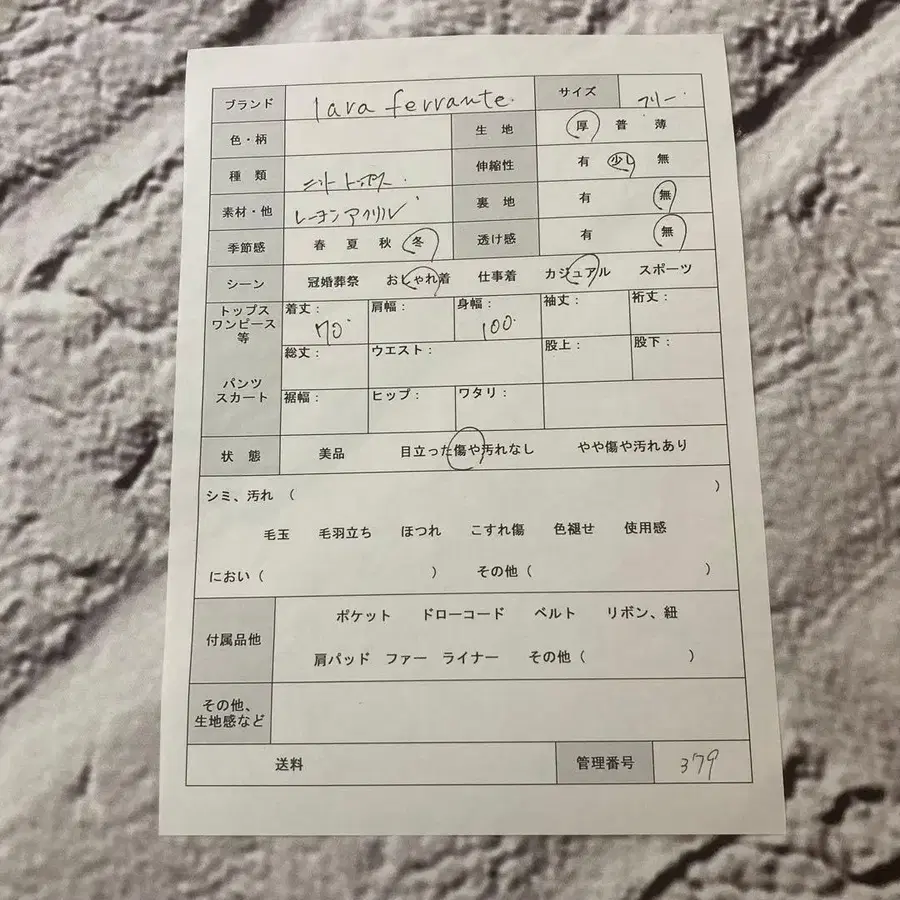 ブランド lara ferrante. サイズ フリー
色・柄 生 地 厚 普 薄
種 類 ニットトップス 伸縮性 有 少し 無
素材・他 レーヨンアクリル 裏 地 有 無
季節感 春 夏 秋 冬 透け感 有 無
シーン 冠婚葬祭 おしゃれ着 仕事着 カジュアル スポーツ
トップス ワンピース 等 着丈: 70 肩幅: 身幅: 100 袖丈: 裄丈:
パンツ スカート 総丈: ウエスト: 股上: 股下:
裾幅: ヒップ: ワタリ:
状 態 美品 目立った傷や汚れなし やや傷や汚れあり
シミ、汚れ ( )
毛玉 毛羽立ち ほつれ こすれ傷 色褪せ 使用感
におい ( ) その他 ( )
付属品他 ポケット ドローコード ベルト リボン、紐
肩パッド ファー ライナー その他 ( )
その他、
生地感など
送料 管理番号 379